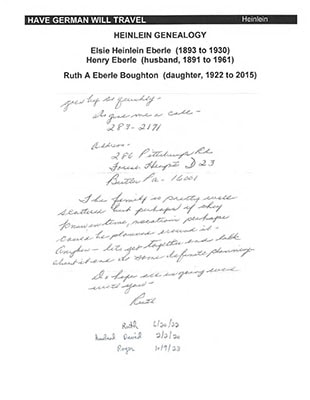 HAVE GERMAN WILL TRAVEL
Heinlein
HEINLEIN GENEALOGY
Elsie Heinlein Eberle (1893 to 1930)
Henry Eberle (husband, 1891 to 1961)
Ruth A Eberle Boughton (daughter, 1922 to 2015)
up so quickly -
So give me a call -
283-2171
Address -
286 Pittsburgh Rd
Forest Heights D 23
Butler Pa - 16001
The family is pretty well
scattered and perhaps if they
knew in time, vacations perhaps
could be planned around it -
Anyhow - let's get together and talk
about it and do some definite planning
Do hope all is going well
with you -
Ruth
Ruth 6/20/22
Husband David 2/2/20
Roger 10/9/23